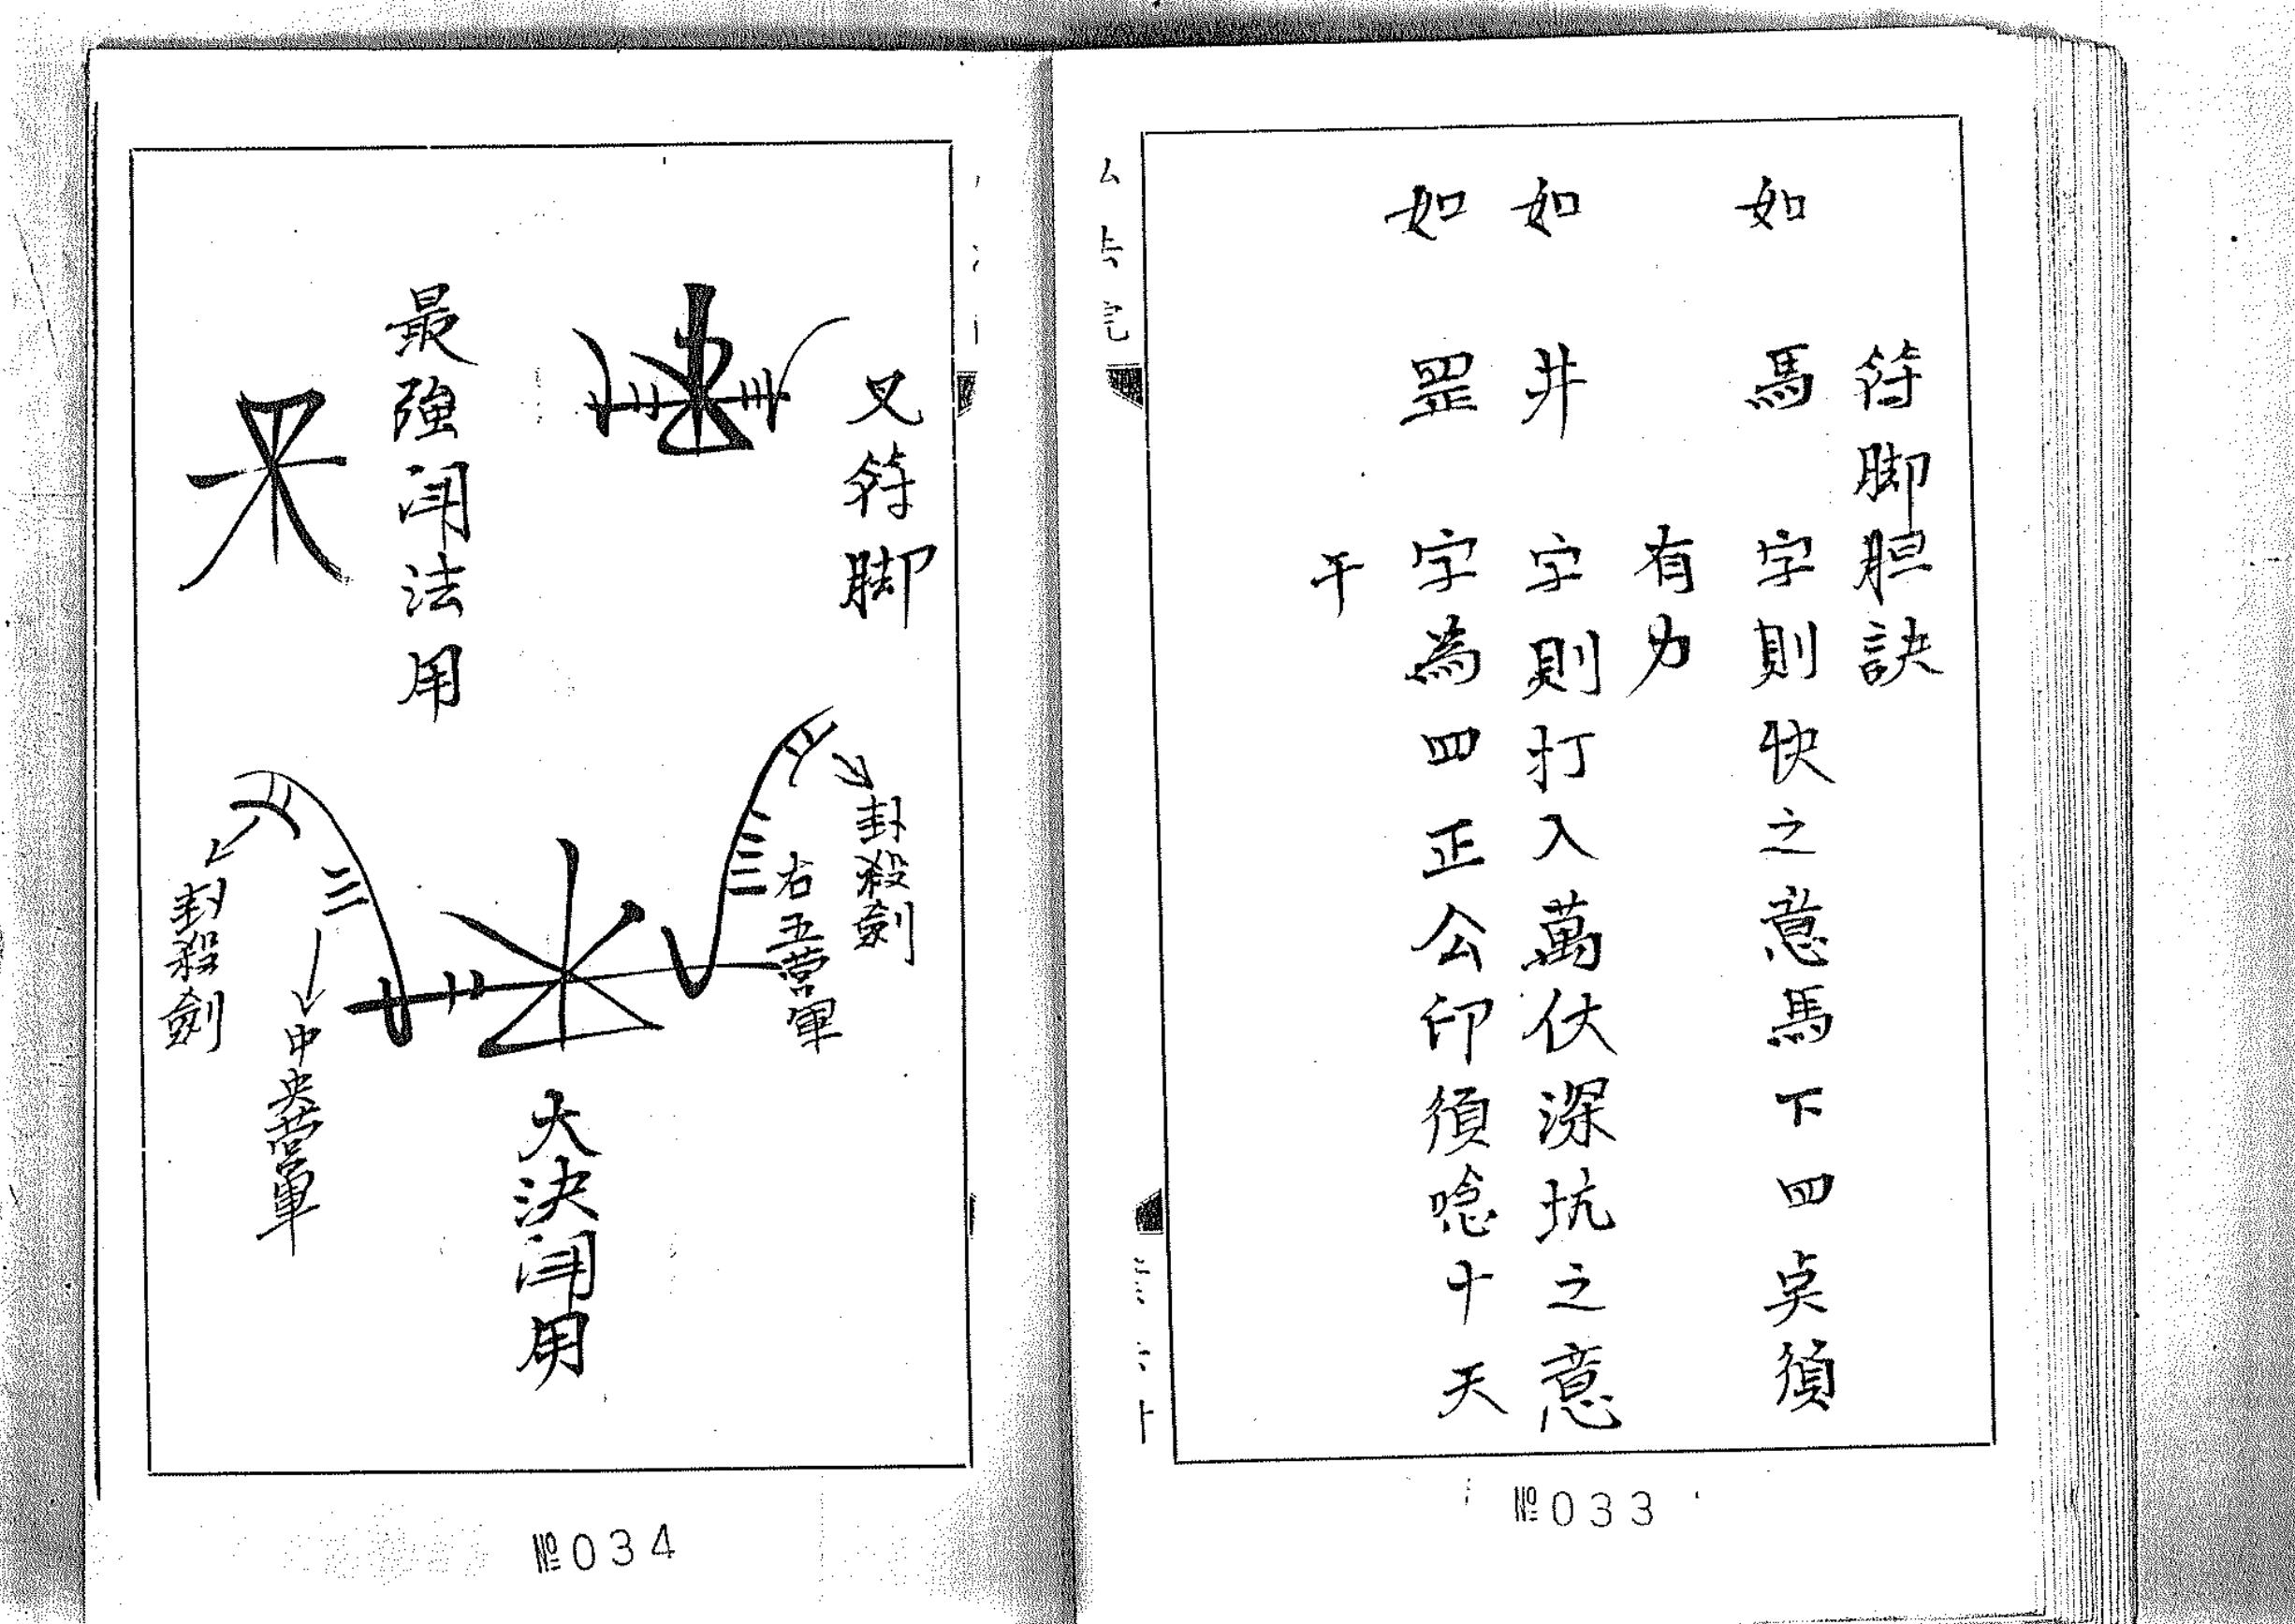 符脚胆訣
如馬字則快之意馬下四点須
有力
如井字則打入萬伏深坑之意
如罡字為四正公印須唸十天
干
№033
又符脚
最強闬法用
封殺劍
右五營軍
大決闬用
中央營軍
封殺劍
№034